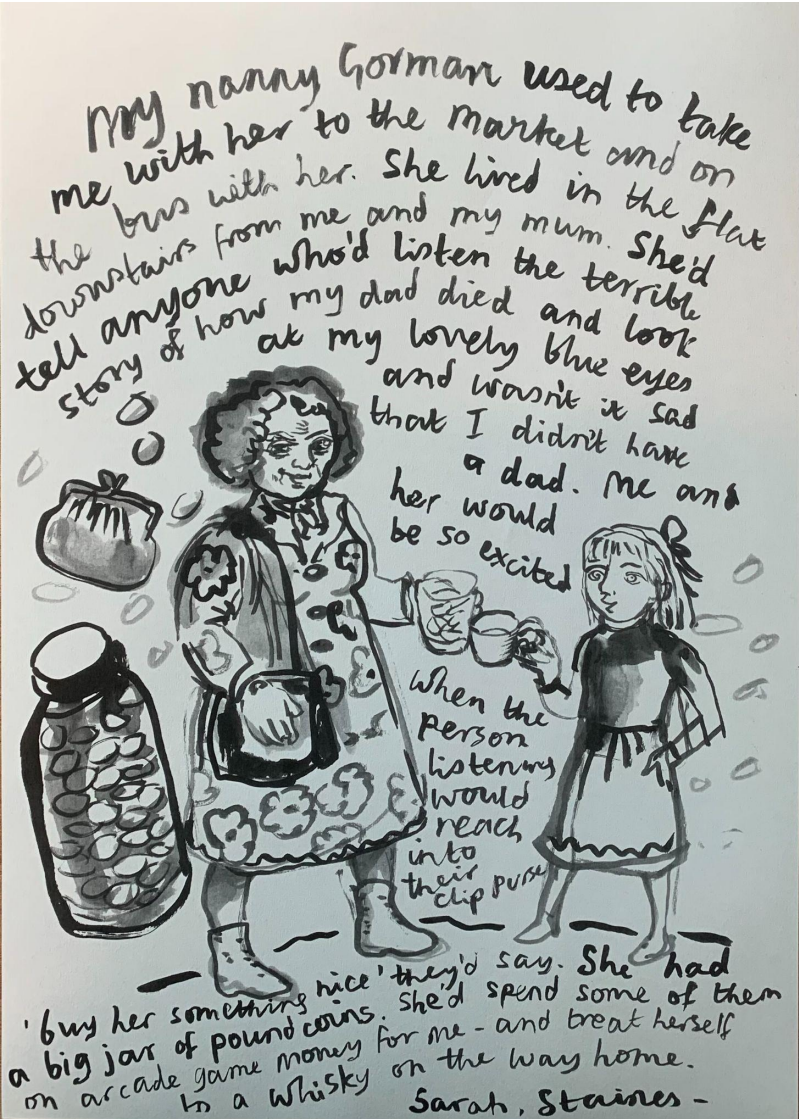 My nanny Gorman used to take
me with her to the market and on
the bus with her. She lived in the flat
downstairs from me and my mum. She'd
tell anyone who'd listen the terrible
story of how my dad died and look
at my lovely blue eyes
and wasn't it sad
that I didn't have
a dad. Me and
her would
be so excited
when the
person
listening
would
reach
into
their
clip purse
'buy her something nice' they'd say. She had
a big jar of pound coins. She'd spend some of them
on arcade game money for me - and treat herself
to a whisky on the way home.
Sarah, Staines -